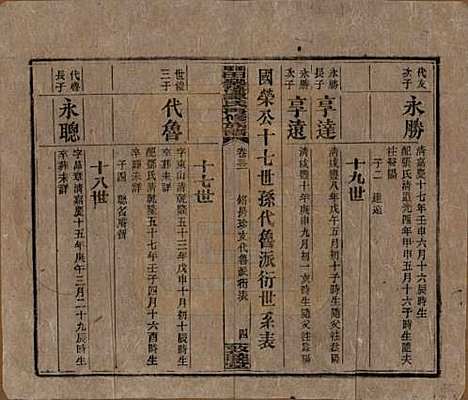 代友
次子
永勝
清嘉慶十七年壬申六月十六辰時生
配張氏清道光四年甲申五月十六子時生隨夫
往益陽
子二 達 遠
十九世
永勝
長子
享達
清咸豐八年戊午五月初十子時生隨父往益陽
永勝
次子
享遠
清咸豐十年庚申九月初二寅時生隨父往益陽
國榮公十七世孫代魯派衍世系表
卷三
代魯派衍世系表
四
十七世
世俊
三子
代魯
字東山清乾隆五十三年戊申十月初十辰時生
配鄒氏清乾隆五十七年壬子四月十六酉時生
卒葬未詳
子四
十八世
代魯
長子
永聰
字昌華清嘉慶十五年庚午三月二十九辰時生
卒葬未詳